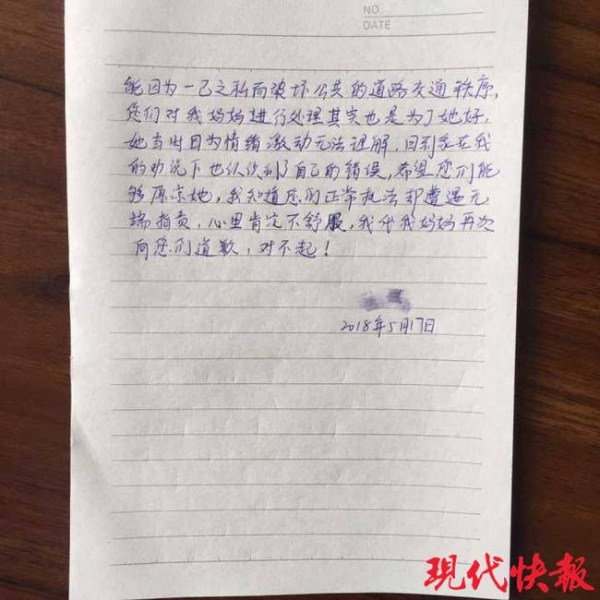 NO.
DATE
能因为一己之私而破坏公共的道路交通秩序,
您们对我妈妈进行处理其实也是为了她好.
她当时因为情绪激动无法理解,回到家在我
的劝说下也认识到了自己的错误,希望您们能
够原谅她,我知道您们正常执法却遭遇无
端指责,心里肯定不舒服,我代我妈妈再次
向您们道歉,对不起!
2018年5月17日
現代快報